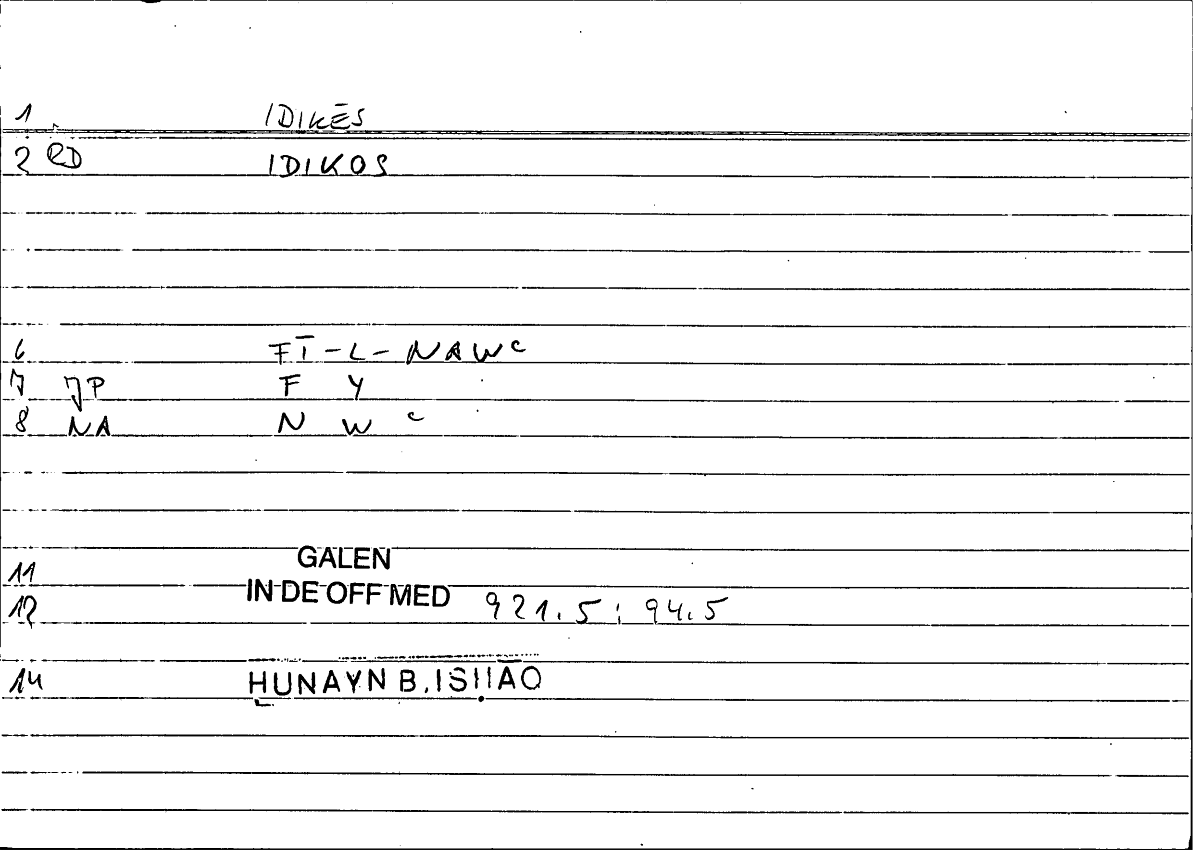 1 IDIKĒS
2 RD IDIKOS
6 FĪ-L-NAWc
7 JP F Y
8 NA N W c
11 GALEN
12 IN DE OFF MED 921.5; 94.5
14 ḤUNAYN B. ISḤĀQ